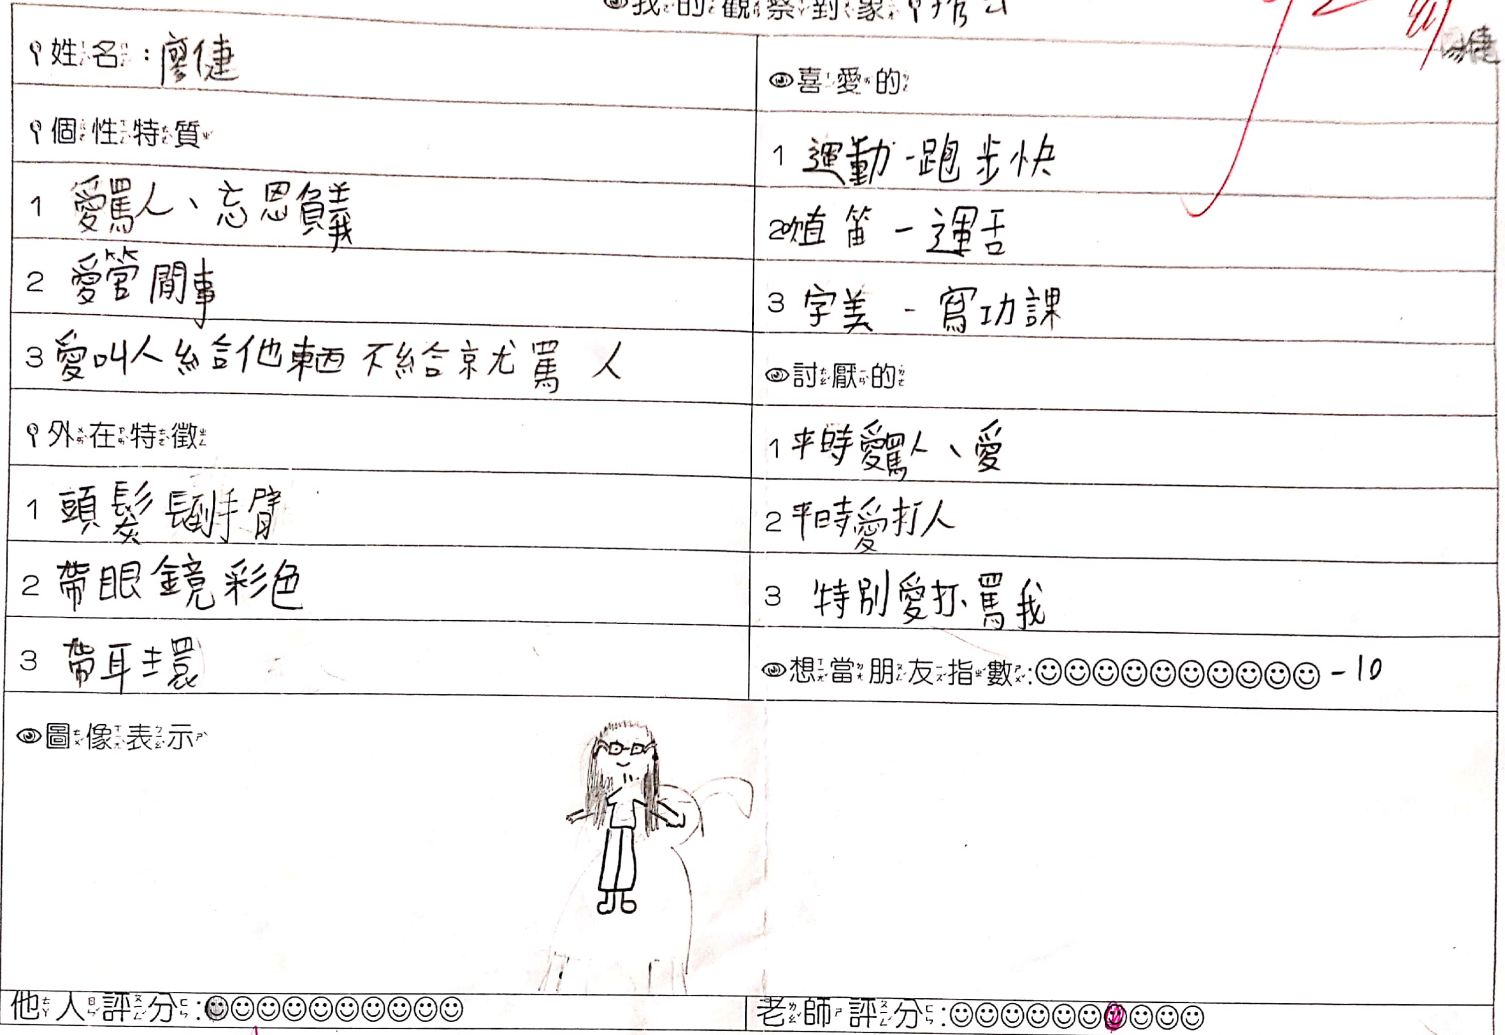 我的觀察對象
姓名：廖倢
個性特質
1 愛罵人、忘恩負義
2 愛管閒事
3 愛叫人給他東西 不給就罵人
外在特徵
1 頭髮長到手臂
2 帶眼鏡彩色
3 帶耳環
喜愛的
1 運動-跑步快
2 吹直笛-運舌
3 字美-寫功課
討厭的
1 平時愛罵人、愛
2 平時愛打人
3 特別愛打罵我
想當朋友指數:☺☺☺☺☺☺☺☺☺☺-10
圖像表示
他人評分:☺☺☺☺☺☺☺☺☺☺
老師評分:☺☺☺☺☺☺☺☺☺☺